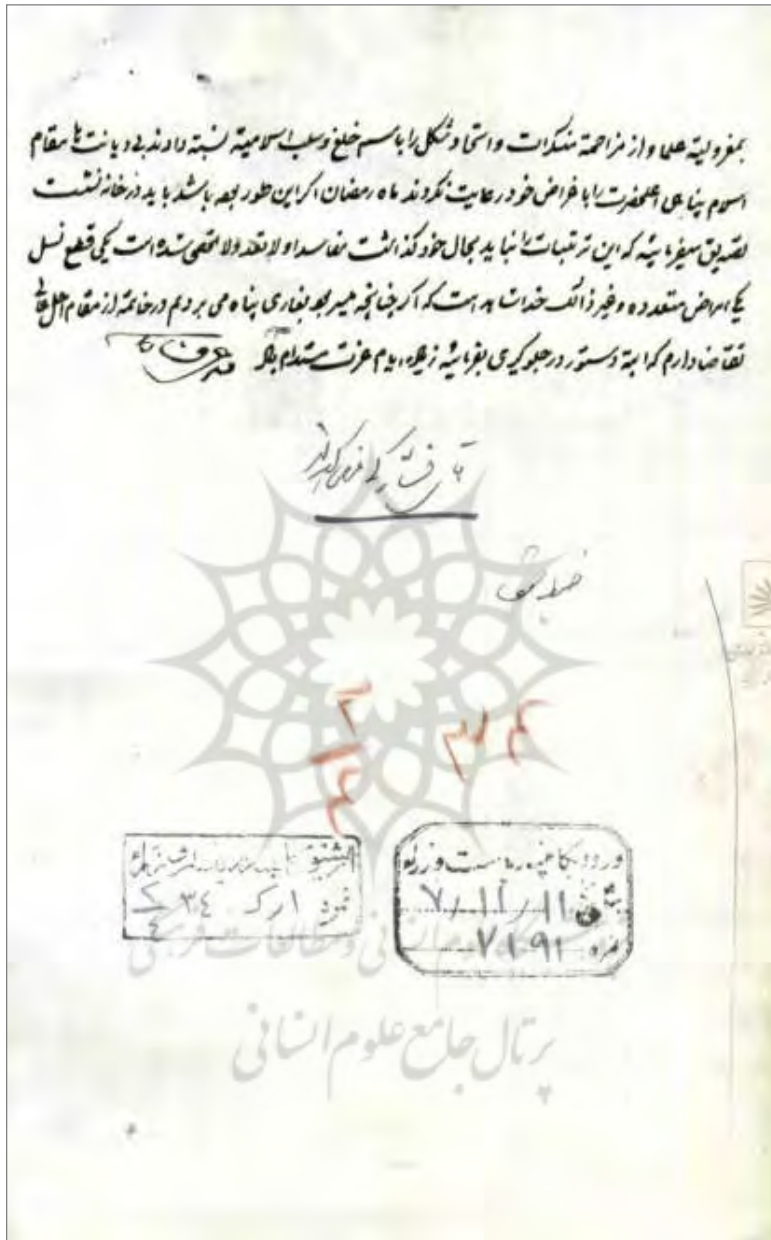 بمغرولیة علما و از مزاحمة منکرات و اتحاد شکل را باسم خلع وسلب اسلامیة نسبة دادند بی دیانت ها مقام
اسلام پناهی اعلحضرت را باغراض خود رعایت نکردند ماه رمضان اگر این طور بوده باشد باید در خانه نشست
تصدیق میفرمائید که این ترتیبات را نباید بحال خود گذاشت مفاسد اولا تعد ولا تحصی شده است یکی قطع نسل
یکی امراض متعدده وغیر ذالک خدا شاهد است که اگر چنانچه میر بود بغاری پناه می بردیم در خاتمه از مقام اجل عالی
تقاضا دارم که البته دستور در جلوگیری بفرمائید زیاده ایام عزت مستدام باد
ضبط شود
۳۴
۲/۴
ورود کابینه ریاست وزراء
۷/۱۱/۱۱
نمره ۷۱۹۱
آرشیو
نمره ۱رک ۳٤ ۲/٤
پژوهشگاه علوم انسانی و مطالعات فرهنگی
پرتال جامع علوم انسانی